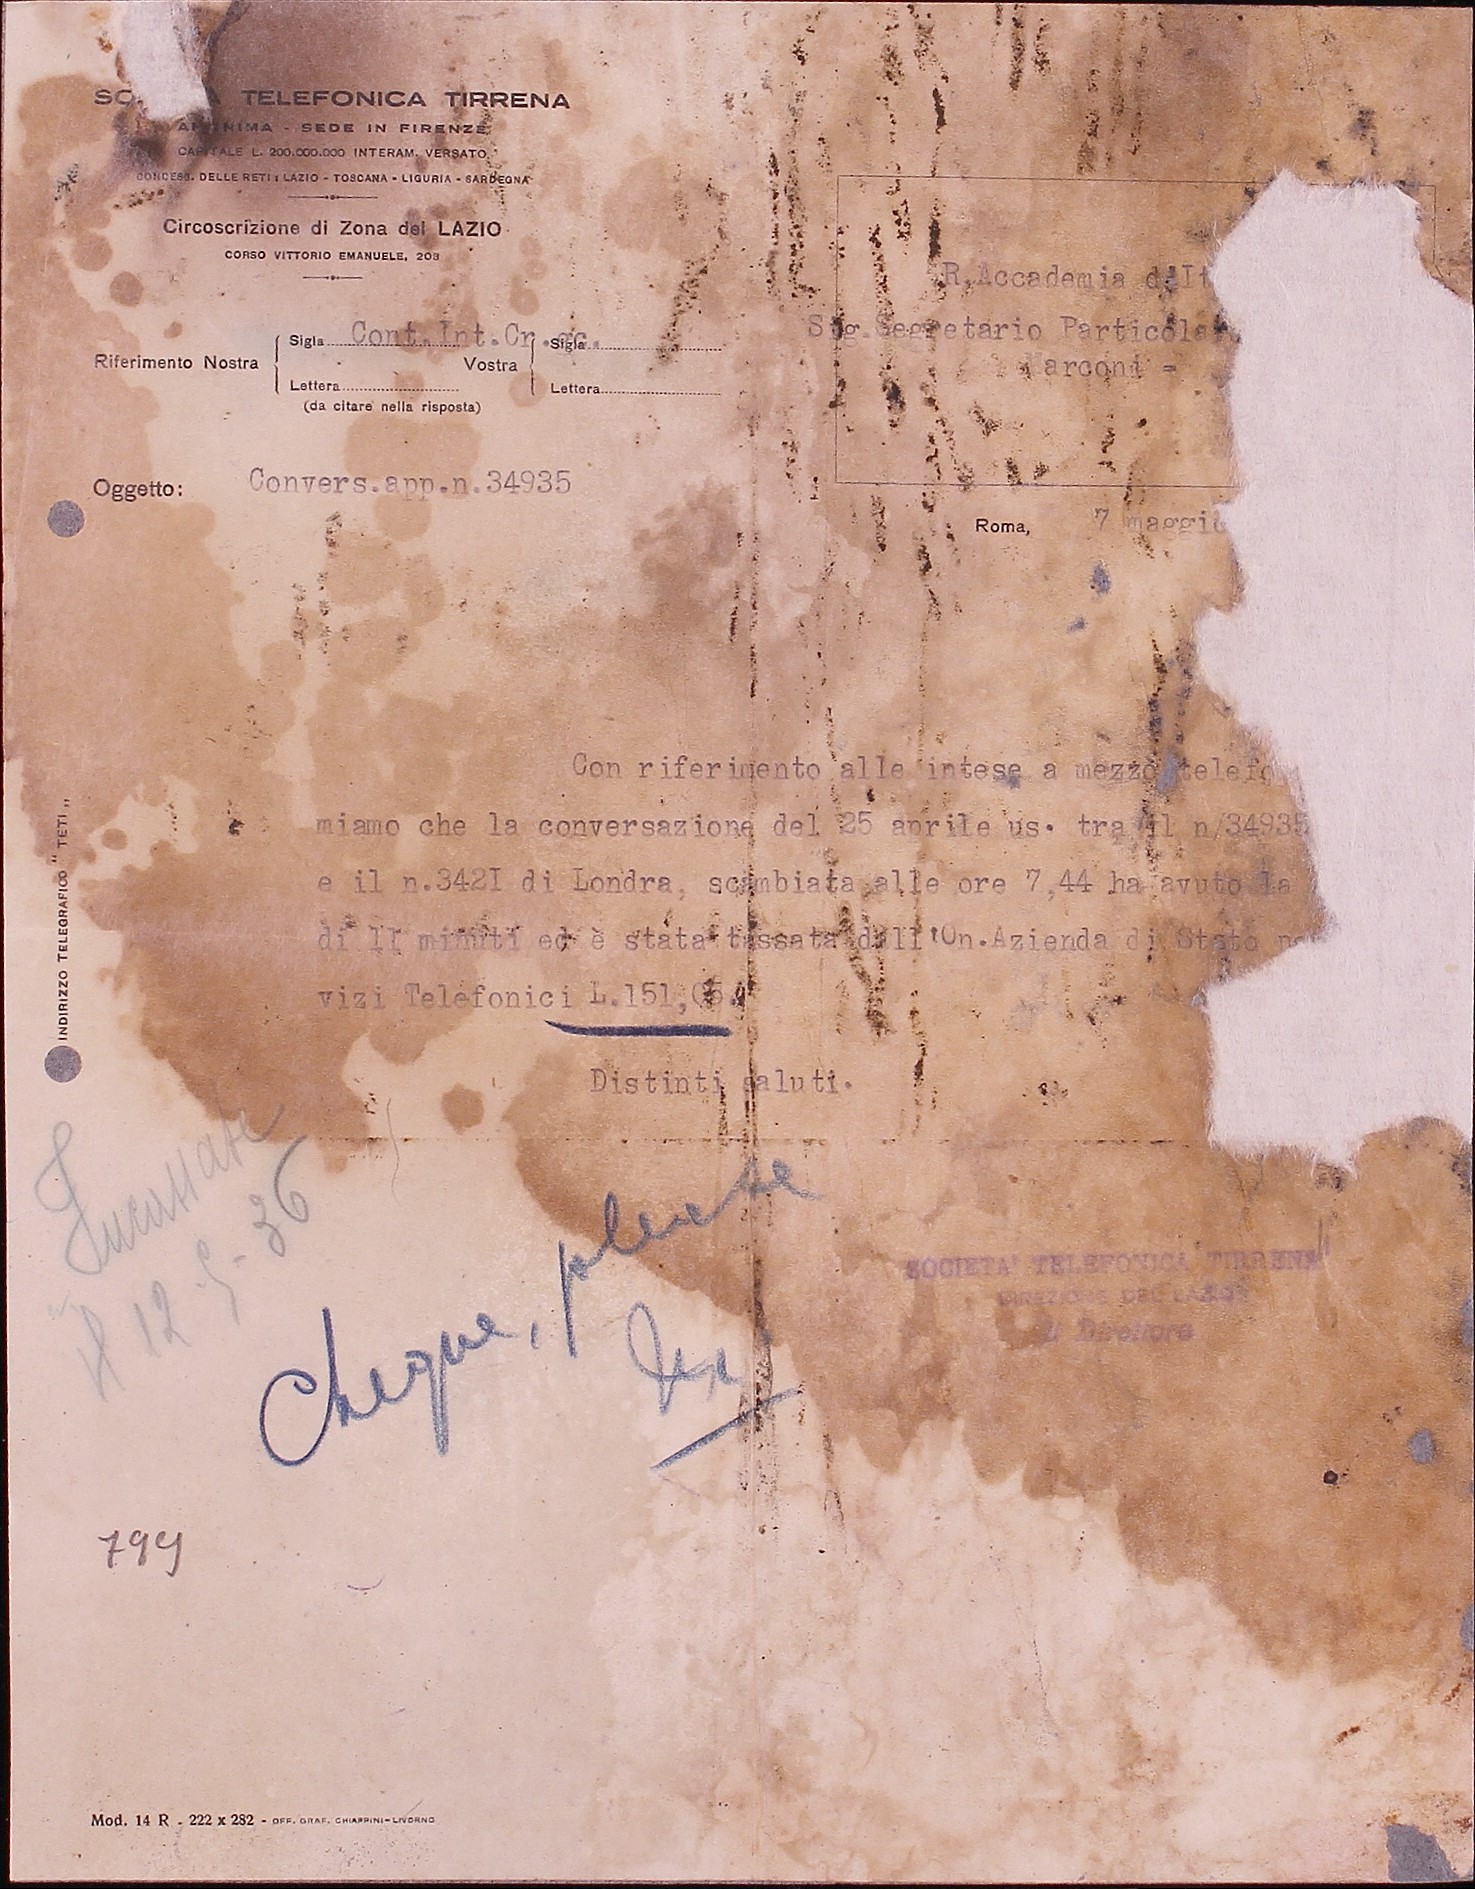 TELEFONICA TIRRENA
ANONIMA - SEDE IN FIRENZE
CAPITALE L. 200.000.000 INTERAM. VERSATO
CONCESS. DELLE RETI: LAZIO - TOSCANA - LIGURIA - SARDEGNA
Circoscrizione di Zona del LAZIO
CORSO VITTORIO EMANUELE, 208
R.Accademia d'It
Sig.Segretario Particolar
Marconi =
Riferimento Nostra
Sigla Cont.Int.Cr.
Lettera
Vostra
Sigla
Lettera
(da citare nella risposta)
Oggetto: Convers.app.n.34935
Roma, 7 maggio
Con riferimento alle intese a mezzo telefo
miamo che la conversazione del 25 aprile us. tra il n/34935
e il n.342I di Londra, scambiata alle ore 7,44 ha avuto la
di II minuti ed è stata tassata dall'On.Azienda di Stato
vizi Telefonici L.151,05.
Distinti saluti.
INDIRIZZO TELEGRAFICO "TETI"
12-5-36
Cheque, please
SOCIETA' TELEFONICA TIRRENA
DIREZIONE DEL LAZIO
Il Direttore
799
Mod. 14 R - 222 x 282 - OFF. GRAF. CHIAPPINI-LIVORNO